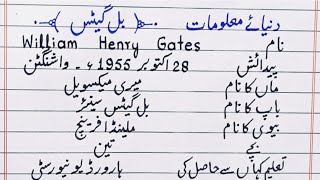 دنیائے معلومات ۔ ﴿بل گیٹس﴾
نام William Henry Gates
پیدائش 28 اکتوبر 1955ء ۔ واشنگٹن
ماں کا نام میری میکسویل
باپ کا نام بل گیٹس سینئر
بیوی کا نام ملینڈا فرینچ
بچے تین
تعلیم کہاں سے حاصل کی ہارورڈ یونیورسٹی